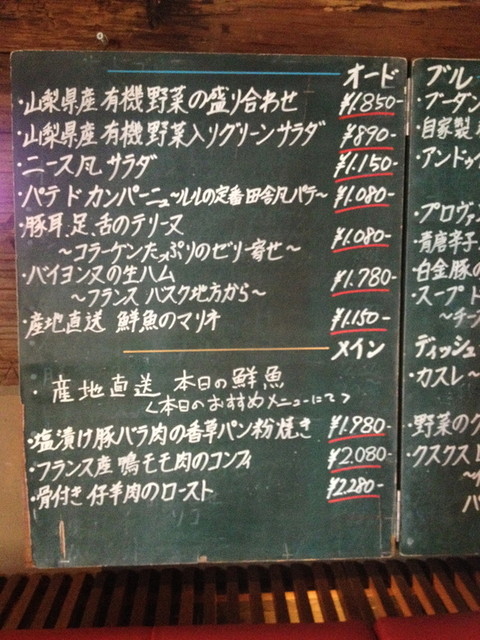 オード ブル
・山梨県産有機野菜の盛り合わせ ¥1850-
・山梨県産有機野菜入りグリーンサラダ ¥890-
・ニース風サラダ ¥1.150-
・パテ ド カンパーニュ～ルルの定番田舎風パテ～ ¥1.080-
・豚耳、足、舌のテリーヌ
～コラーゲンたっぷりのゼリー寄せ～ ¥1.080-
・バイヨンヌの生ハム
～フランス バスク地方から～ ¥1.780-
・産地直送 鮮魚のマリネ ¥1.150-
メイン ディッシュ
・産地直送 本日の鮮魚
<本日のおすすめメニューにて>
・塩漬け豚バラ肉の香草パン粉焼き ¥1.980-
・フランス産鴨モモ肉のコンフィ ¥2.080-
・骨付き仔羊肉のロースト ¥2.280-
・ブーダン
・自家製
・アンドゥ
・プロヴァン
・青唐辛子
・白金豚の
・スープ ド
～チー
・カスレ～
・野菜のク
・クスクス